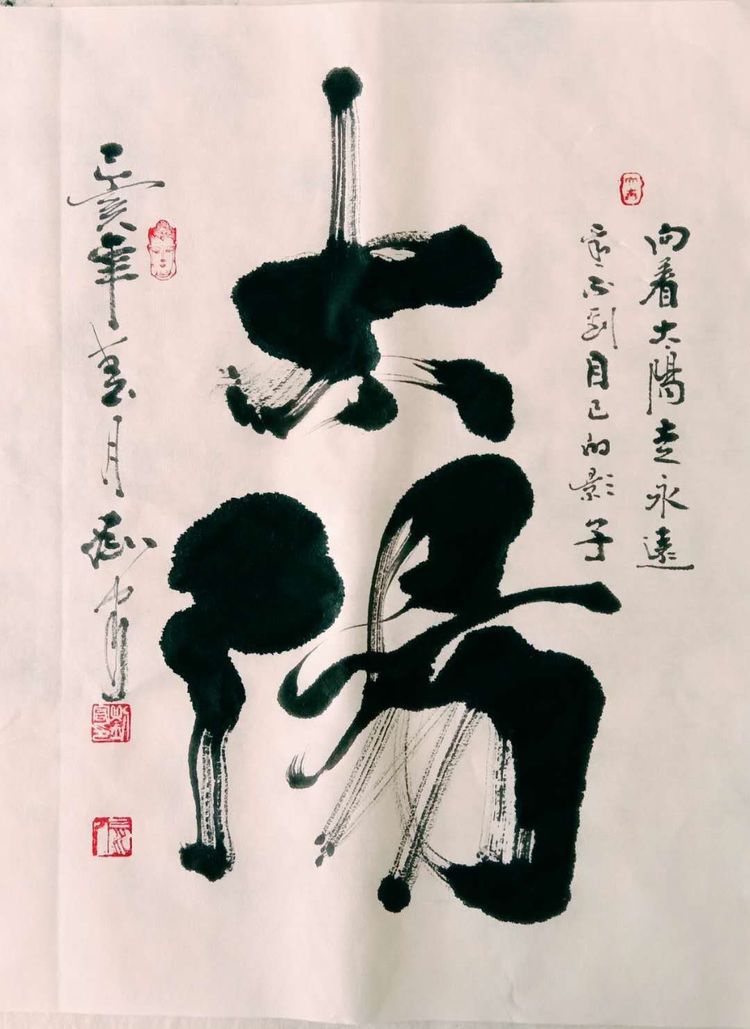 向着太陽走永遠
看不到自己的影子
太陽
己亥年春月